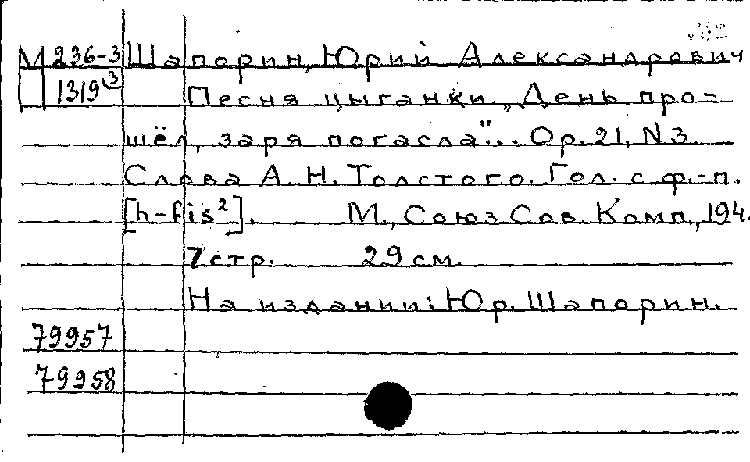 М 236-3 Шапорин, Юрий Александрович
1319 3 Песня цыганки „День про-
шёл, заря погасла"... Ор. 21, N 3.
Слова А. Н. Толстого. Гол. с ф.-п.
[h-fis²]. М., Союз Сов. Комп., 194.
7 стр. 29 см.
На издании: Юр. Шапорин.
79957
79958